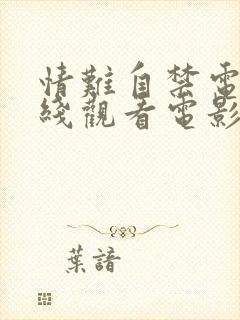 情難自禁電
綫觀看電影
葉諳